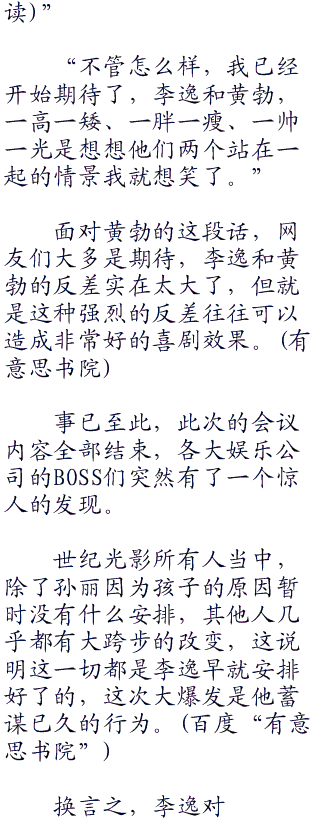 读)”
“不管怎么样，我已经
开始期待了，李逸和黄勃，
一高一矮、一胖一瘦、一帅
一光是想想他们两个站在一
起的情景我就想笑了。”
面对黄勃的这段话，网
友们大多是期待，李逸和黄
勃的反差实在太大了，但就
是这种强烈的反差往往可以
造成非常好的喜剧效果。(有
意思书院)
事已至此，此次的会议
内容全部结束，各大娱乐公
司的BOSS们突然有了一个惊
人的发现。
世纪光影所有人当中，
除了孙丽因为孩子的原因暂
时没有什么安排，其他人几
乎都有大跨步的改变，这说
明这一切都是李逸早就安排
好了的，这次大爆发是他蓄
谋已久的行为。(百度“有意
思书院”)
换言之，李逸对